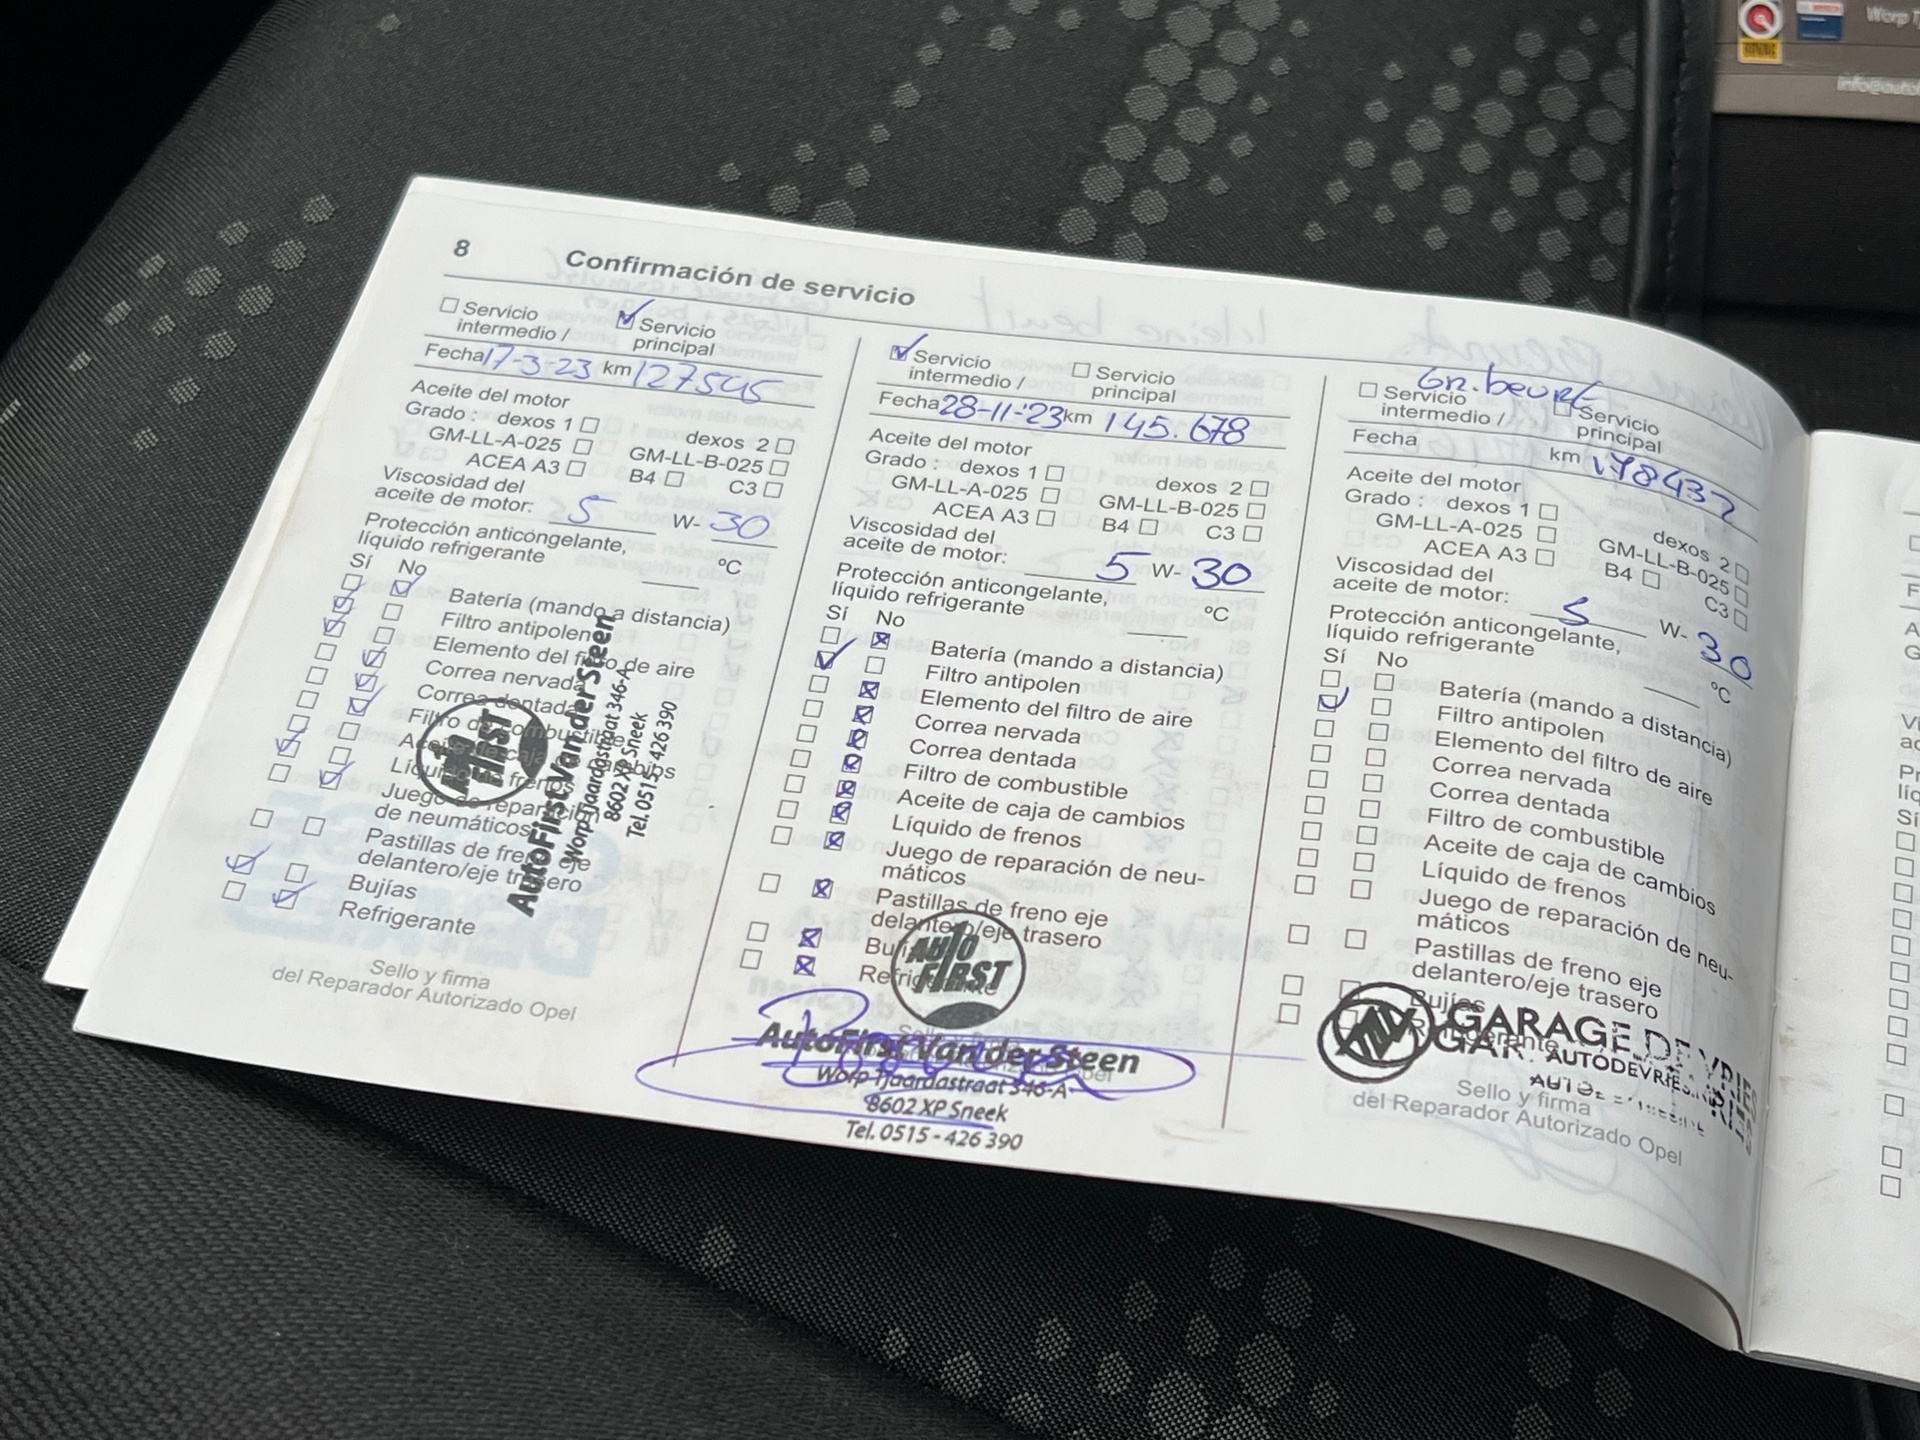 8 Confirmación de servicio
Servicio intermedio /
Servicio principal
Fecha 17-3-23 km 127545
Aceite del motor
Grado : dexos 1 dexos 2
GM-LL-A-025 GM-LL-B-025
ACEA A3 B4 C3
Viscosidad del
aceite de motor: 5 W- 30
Protección anticongelante,
líquido refrigerante ºC
Sí No
Batería (mando a distancia)
Filtro antipolen
Elemento del filtro de aire
Correa nervada
Correa dentada
Filtro de combustible
Aceite de caja de cambios
Líquido de frenos
Juego de reparación
de neumáticos
Pastillas de freno eje
delantero/eje trasero
Bujías
Refrigerante
AUTO FIRST
AutoFirst Van der Steen
Worp Tjaardastraat 346-A
8602 XP Sneek
Tel. 0515 - 426 390
Sello y firma
del Reparador Autorizado Opel
Servicio intermedio /
Servicio principal
Fecha 28-11-'23 km 145.678
Aceite del motor
Grado : dexos 1 dexos 2
GM-LL-A-025 GM-LL-B-025
ACEA A3 B4 C3
Viscosidad del
aceite de motor: 5 W- 30
Protección anticongelante,
líquido refrigerante ºC
Sí No
Batería (mando a distancia)
Filtro antipolen
Elemento del filtro de aire
Correa nervada
Correa dentada
Filtro de combustible
Aceite de caja de cambios
Líquido de frenos
Juego de reparación de neu-
máticos
Pastillas de freno eje
delantero/eje trasero
Bujías
Refrigerante
AUTO FIRST
AutoFirst Van der Steen
Worp Tjaardastraat 346-A
8602 XP Sneek
Tel. 0515 - 426 390
Gr. beurt
Servicio intermedio /
Servicio principal
Fecha km 178437
Aceite del motor
Grado : dexos 1 dexos 2
GM-LL-A-025 GM-LL-B-025
ACEA A3 B4 C3
Viscosidad del
aceite de motor: 5 W- 30
Protección anticongelante,
líquido refrigerante ºC
Sí No
Batería (mando a distancia)
Filtro antipolen
Elemento del filtro de aire
Correa nervada
Correa dentada
Filtro de combustible
Aceite de caja de cambios
Líquido de frenos
Juego de reparación de neu-
máticos
Pastillas de freno eje
delantero/eje trasero
Bujías
Refrigerante
GARAGE DE VRIES
Sello y firma
del Reparador Autorizado Opel